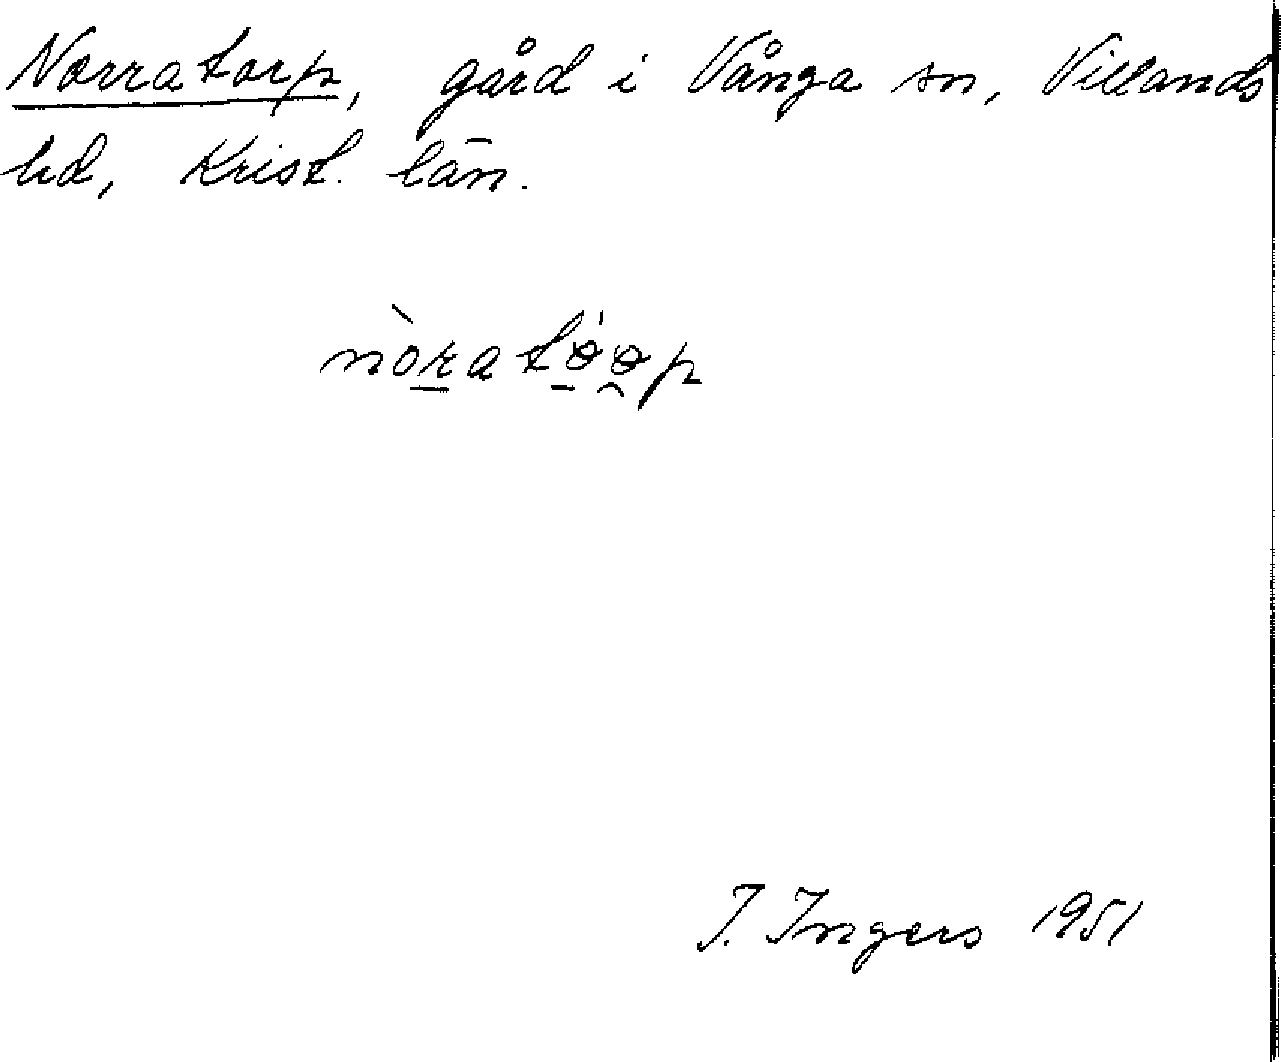 Norratorp, gård i Vånga sn, Villands
hd, Krist. län.
nòrató̤o̯p
I. Ingers 1951